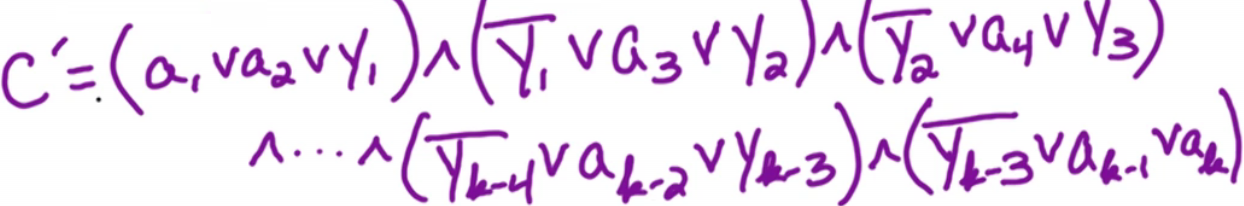 C′=(a₁∨a₂∨y₁)∧(y̅₁∨a₃∨y₂)∧(y̅₂∨a₄∨y₃)
∧···∧(y̅ₖ₋₄∨aₖ₋₂∨yₖ₋₃)∧(y̅ₖ₋₃∨aₖ₋₁∨aₖ)